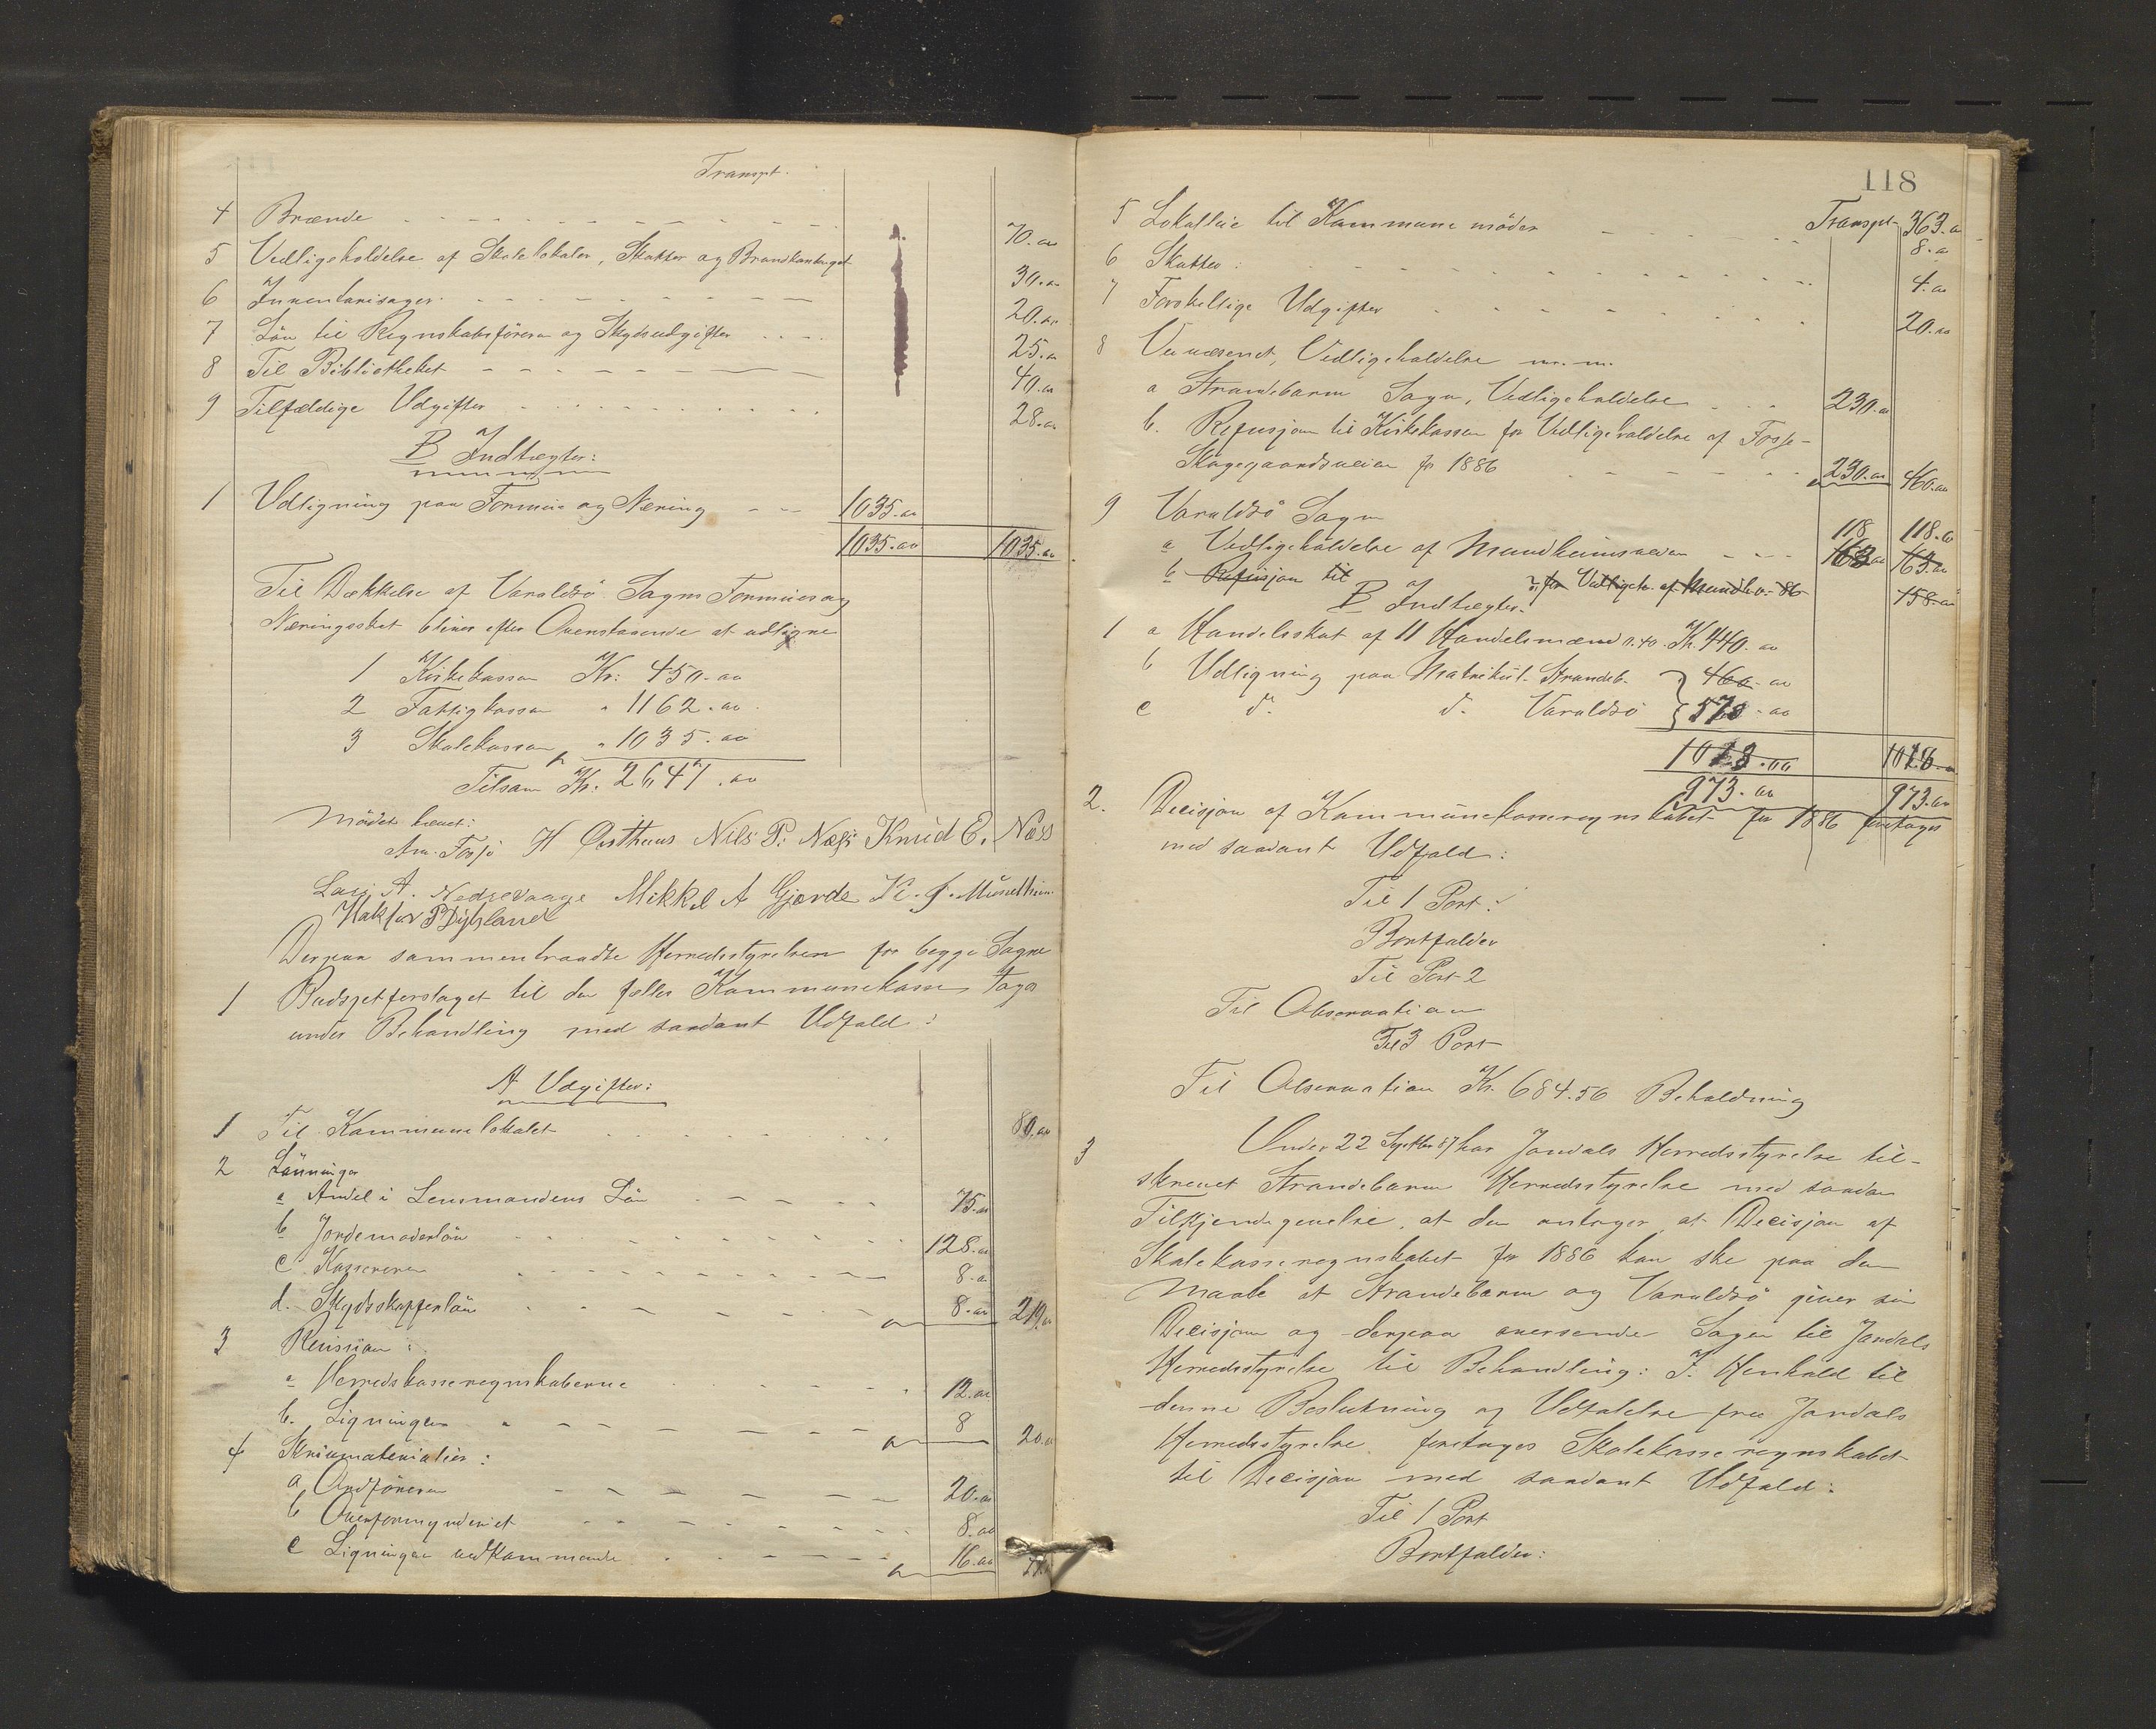 Transpt.
4 Brænde 70.00
5 Vedligeholdelse af Skolelokaler, Skatter og Brandkontingent 30.00
6 Inventarisager 20.00
7 Løn til Regnskabsføreren og Skydsudgifter 25.00
8 Til Bibliotheket 40.00
9 Tilfældige Udgifter 28.00
B Indtægter:
1 Udligning paa Formue og Næring 1035.00
1035.00 1035.00
Til Dækkelse af Varaldsø Sagns Formues og
Næringsskat bliver efter Ovenstaaende at udligne
1 Kirkekassen Kr: 450.00
2 Fattigkassen " 1162.00
3 Skolekassen " 1035.00
Tilsam Kr. 2647.00
Mødet hævet:
Am. Fosse H Østhuus Nils P. Næss Knud E. Næss
Lars A. Nedrevaage Mikkel A Gjerde K. J. Mundheim
Haktor P Dysland
Derpaa sammentraadte Herredsstyrelsen for begge Sogne
1 Budgetforslaget til den fælles Kommunekasse toges
under Behandling med saadant Udfald:
A Udgifter:
1 Til Kommunelokalet 80.00
2 Lønninger
a Andel i Lensmandens Løn 75.00
b Jordemoderløn 128.00
c Kassereren 8.00
d. Skydsskafferløn 8.00 219.00
3 Revision:
a Herredskasseregnskaberne 12.00
b. Ligningen 8 20.00
4 Skrivmaterialier:
a Ordføreren 20.00
b Overformynderiet 8.00
c Ligningen vedkommende 16.00
118
Transpt 363.00
5 Lokalleie til Kommunemøder 8.00
6 Skatter: 4.00
7 Forskellige Udgifter 20.00
8 Veivæsenet, Vedligeholdelse m.m.
a Strandebarm Sogn, Vedligeholdelse 230.00
b. Refusjon til Kirkekassen for Vedligeholdelse af Fosse-
Skogegaardsveien for 1886 230.00 460.00
9 Varaldsø Sogn
a Vedligeholdelse af Mundheimsveien 118 118.00
b Refusjon til
B Indtægter.
1 a Handelsskat af 11 Handelsmænd á 40. Kr. 440.00
b Udligning paa Matrikul. Strandeb. 460.00
c do. do. Varaldsø
973.00 973.00
2. Decisjon af Kommunekasseregnskabet for 1886 foretoges
med saadant Udfald:
Til 1 Post:
Bortfalder
Til Post 2
Til Observation
Til 3 Post
Til Observation Kr. 684.56 Beholdning
3 Under 22 Septbr 87 har Jondals Herredsstyrelse til-
skrevet Strandebarm Herredsstyrelse med saadan
Tilkjendegivelse, at den antager at Decisjon af
Skolekasseregnskabet for 1886 kan ske paa den
Maade at Strandebarm og Varaldsø giver sin
Decisjon og derpaa oversende Sagen til Jondals
Herredsstyrelse til Behandling: I Henhold til
denne Beslutning og Udtalelse fra Jondals
Herredsstyrelse foretoges Skolekasseregnskabet
til Decisjon med saadant Udfald:
Til 1 Post
Bortfalder: